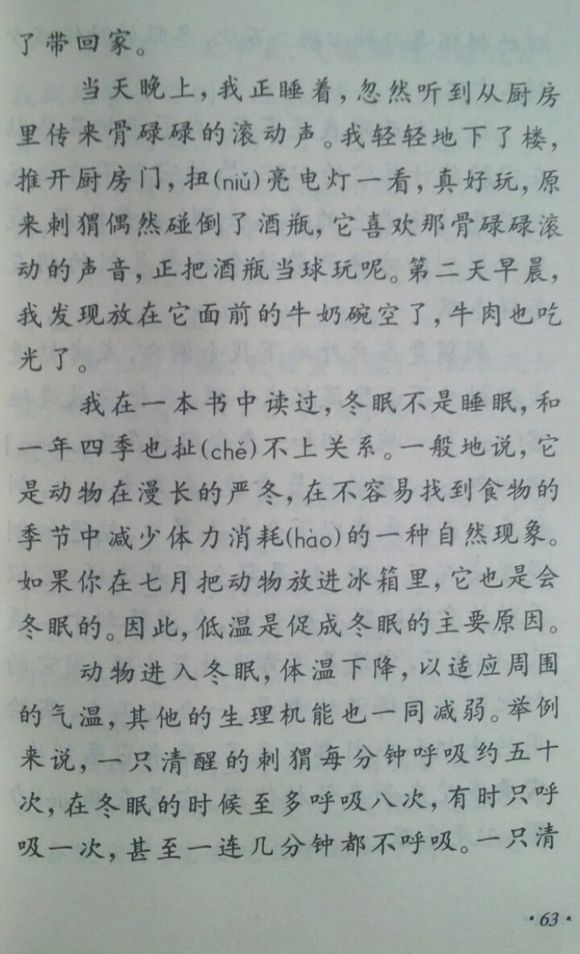 了带回家。
当天晚上，我正睡着，忽然听到从厨房
里传来骨碌碌的滚动声。我轻轻地下了楼，
推开厨房门，扭(niǔ)亮电灯一看，真好玩，原
来刺猬偶然碰倒了酒瓶，它喜欢那骨碌碌滚
动的声音，正把酒瓶当球玩呢。第二天早晨，
我发现放在它面前的牛奶碗空了，牛肉也吃
光了。
我在一本书中读过，冬眠不是睡眠，和
一年四季也扯(chě)不上关系。一般地说，它
是动物在漫长的严冬，在不容易找到食物的
季节中减少体力消耗(hào)的一种自然现象。
如果你在七月把动物放进冰箱里，它也是会
冬眠的。因此，低温是促成冬眠的主要原因。
动物进入冬眠，体温下降，以适应周围
的气温，其他的生理机能也一同减弱。举例
来说，一只清醒的刺猬每分钟呼吸约五十
次，在冬眠的时候至多呼吸八次，有时只呼
吸一次，甚至一连几分钟都不呼吸。一只清
·63·